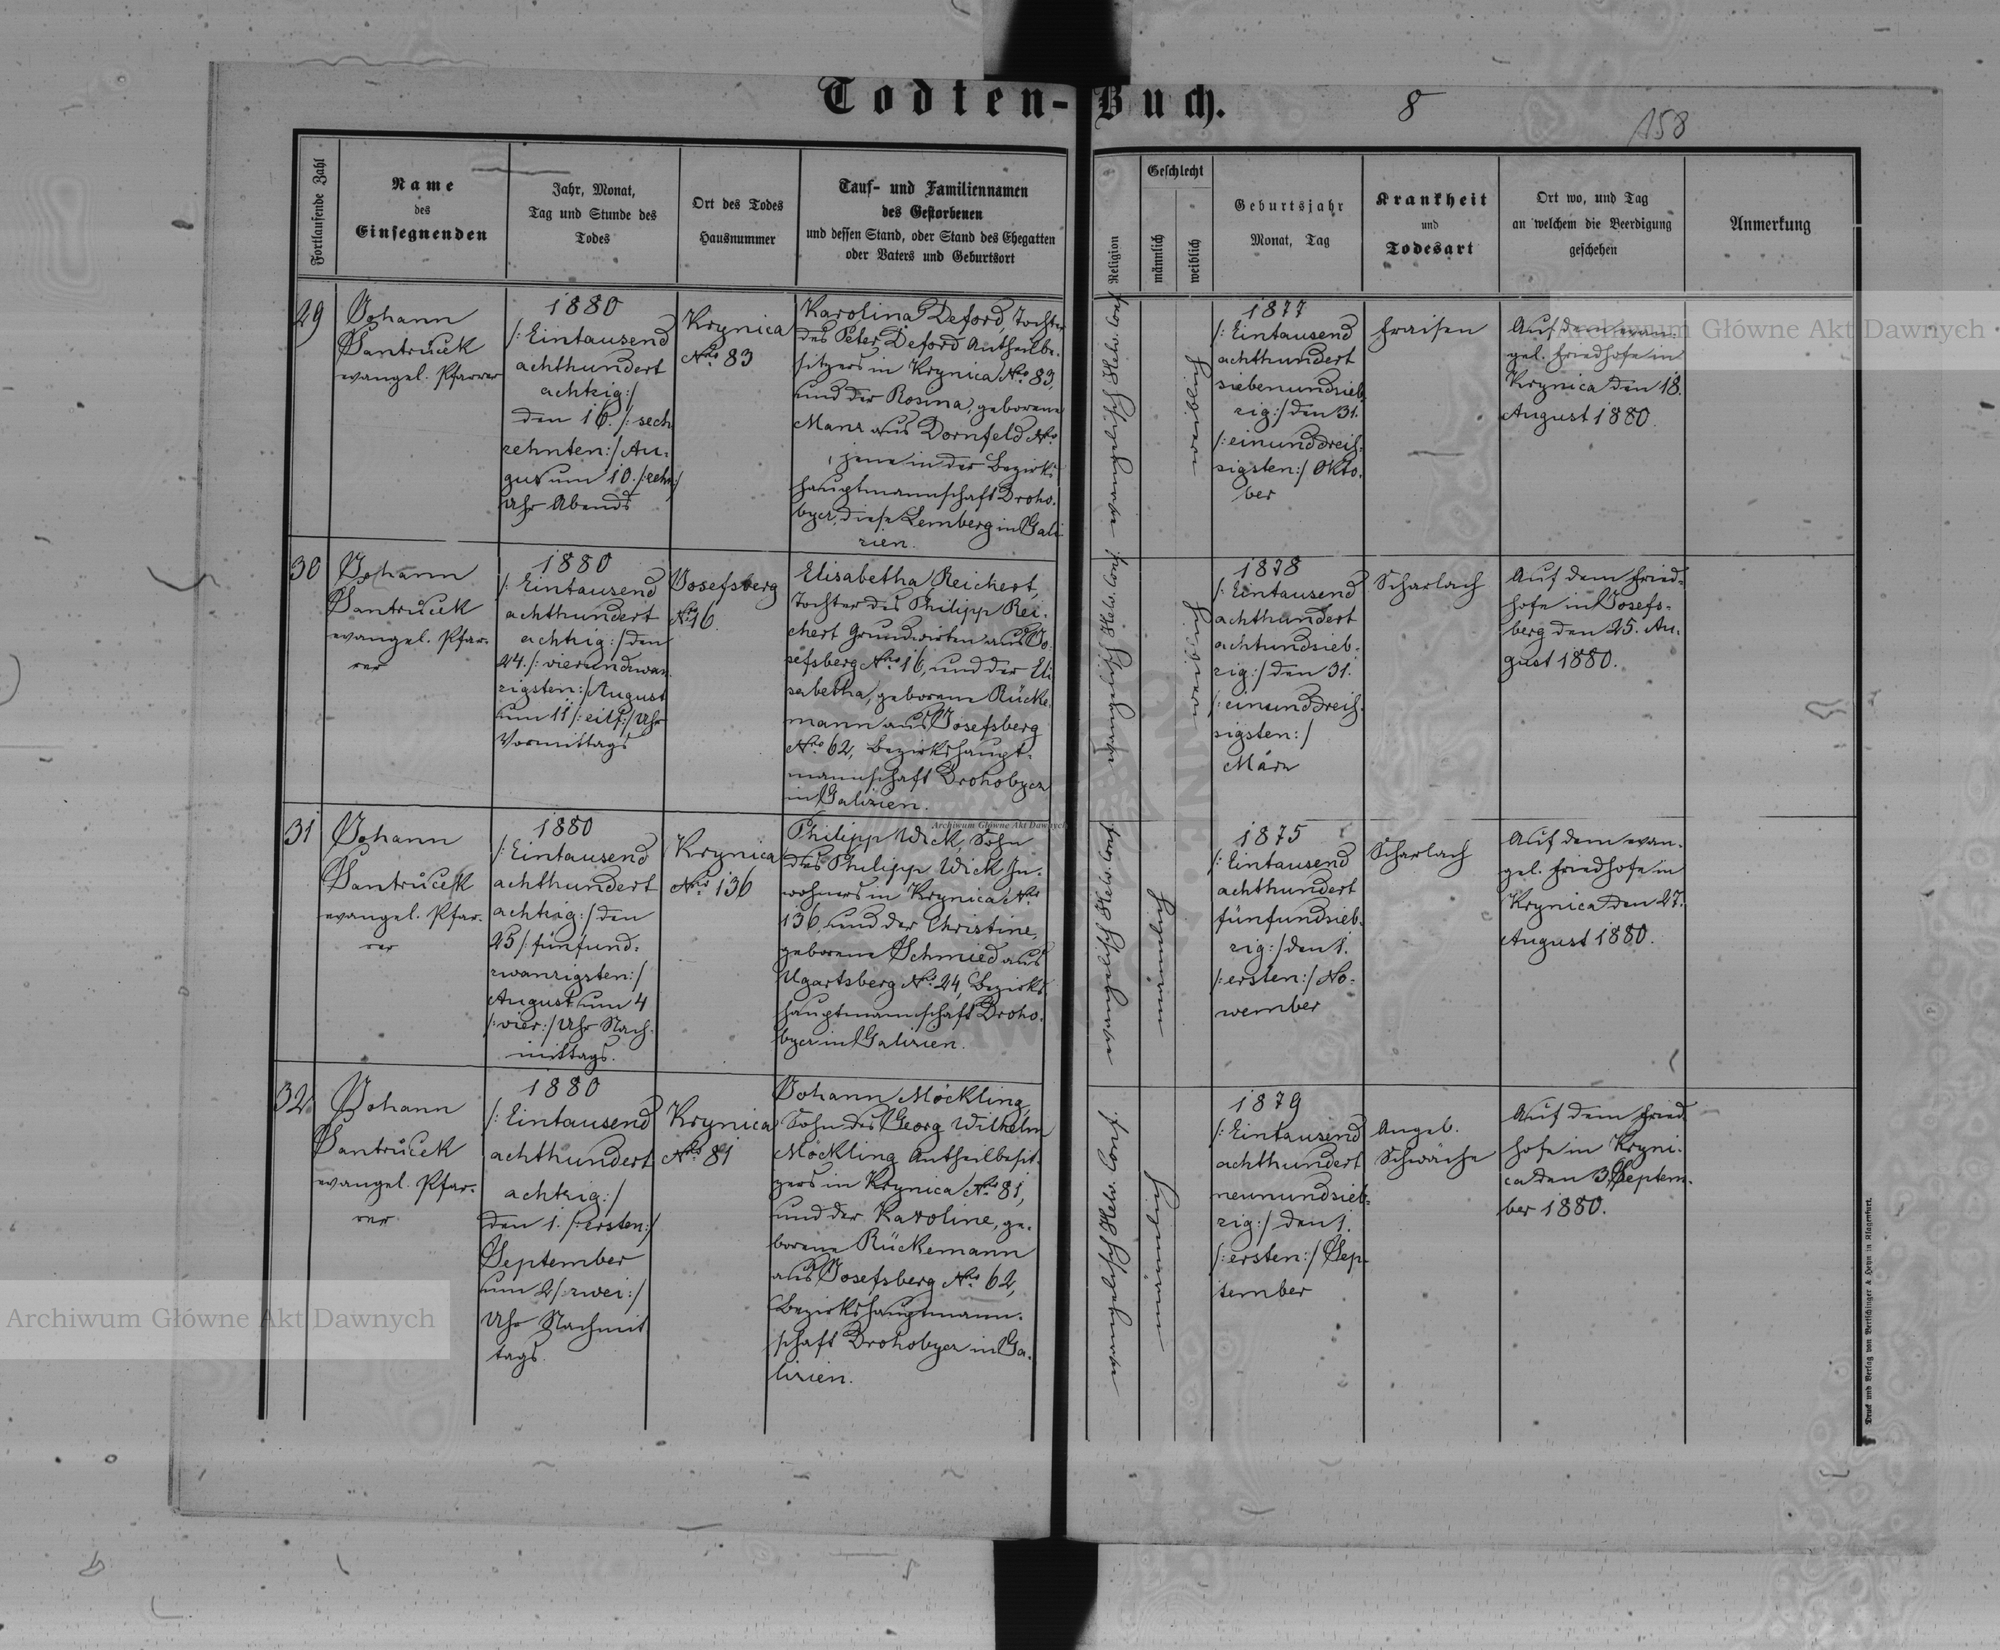 Todten-Buch.
8
158
Fortlaufende Zahl
Name
des
Einsegnenden
Jahr, Monat,
Tag und Stunde des
Todes
Ort des Todes
Hausnummer
Tauf- und Familiennamen
des Gestorbenen
und dessen Stand, oder Stand des Ehegatten
oder Vaters und Geburtsort
Religion
Geschlecht
männlich
weiblich
Geburtsjahr
Monat, Tag
Krankheit
und
Todesart
Ort wo, und Tag
an welchem die Beerdigung
geschehen
Anmerkung
29
Johann
Santrůček
evangel. Pfarrer
1880
/: Eintausend
achthundert
achtzig :/
den 16. /: sech
zehnten :/ Au-
gust um 10. /: zehn :/
Uhr Abends
Krynica
Nro. 83
Karolina Deford, Tochter
des Peter Deford Antheilbe-
sitzers in Krynica Nro. 83,
und der Rosina, geborene
Manz aus Dornfeld Nro.
, jene in der Bezirks
hauptmannschaft Droho-
bycz, diese Lemberg in Gali
zien.
evangelisch Helv. Conf.
weiblich
1877
/: Eintausend
achthundert
siebenundsieb-
zig :/ den 31.
/: einunddreis-
sigsten :/ Okto-
ber
Fraisen
Auf dem evan-
gel. Friedhofe in
Krynica den 18.
August 1880.
30
Johann
Santrůček
evangel. Pfar-
rer
1880
/: Eintausend
achthundert
achtzig :/ den
24. /: vierundzwan
zigsten :/ August
um 11 /: eilf :/ Uhr
Vormittags
Josefsberg
Nro 16
Elisabetha Reichert,
Tochter des Philipp Rei-
chert Grundwirten aus Jo-
sefsberg Nro. 16, und der Eli
sabetha, geborene Rücke-
mann aus Josefsberg
Nro. 62, Bezirkshaupt-
mannschaft Drohobycz
in Galizien.
evangelisch Helv. Conf.
weiblich
1878
/: Eintausend
achthundert
achtundsieb-
zig :/ den 31.
/: einunddreis-
sigsten :/
März
Scharlach
Auf dem Fried-
hofe in Josefs-
berg den 25. Au-
gust 1880.
31
Johann
Santrůček
evangel. Pfar-
rer
1880
/: Eintausend
achthundert
achtzig :/ den
25 /: fünfund-
zwanzigsten :/
August um 4
/: vier :/ Uhr Nach-
mittags.
Krynica
Nro. 136
Philipp Wick, Sohn
des Philipp Wick In-
wohners in Krynica Nro.
136, und der Christine,
geborene Schmied aus
Ugartsberg Nr. 24, Bezirks
hauptmannschaft Droho-
bycz in Galizien.
evangelisch Helv. Conf.
männlich
1875
/: Eintausend
achthundert
fünfundsieb-
zig :/ den 1.
/: ersten :/ No-
wember
Scharlach
Auf dem evan-
gel. Friedhofe in
Krynica den 27.
August 1880.
32.
Johann
Santrůček
evangel. Pfar-
rer
1880
/: Eintausend
achthundert
achtzig :/
den 1. /: ersten :/
September
um 2 /: zwei :/
Uhr Nachmit
tags.
Krynica
Nro. 81
Johann Möckling,
Sohn des Georg Wilhelm
Möckling Antheilbesit-
zers in Krynica Nro. 81,
und der Karoline, ge-
borene Rückemann
aus Josefsberg Nro. 62,
Bezirkshauptmann-
schaft Drohobycz in Ga-
lizien.
evangelisch Helv. Conf.
männlich
1879
/: Eintausend
achthundert
neunundsieb-
zig :/ den 1.
/: ersten :/ Sep-
tember
Angeb.
Schwäche
Auf dem Fried-
hofe in Kryni-
ca den 3. Septem-
ber 1880.
Druck und Verlag von Bertschinger & Heyn in Klagenfurt.
Archiwum Główne Akt Dawnych
Archiwum Główne Akt Dawnych
Archiwum Główne Akt Dawnych